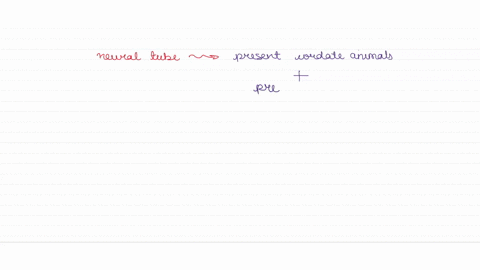 neural tube ⟿ present cordate animals
+
pre